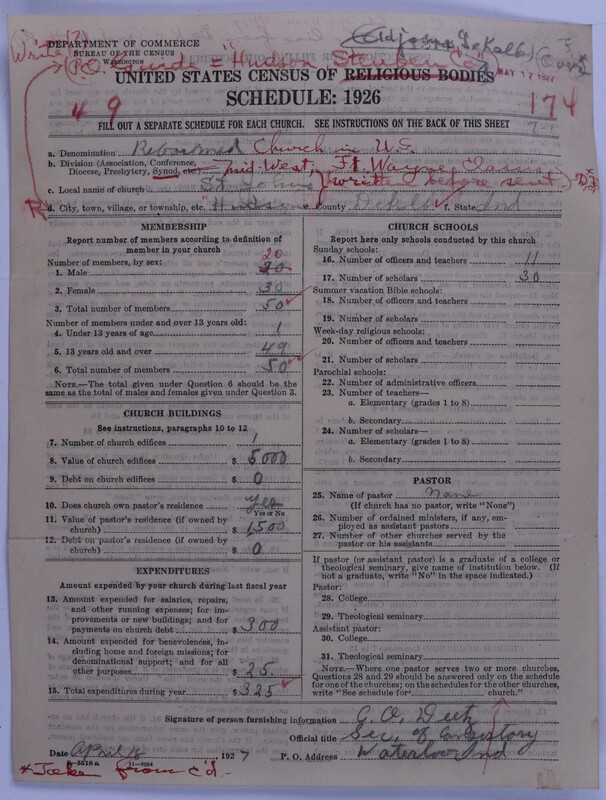 DEPARTMENT OF COMMERCE
BUREAU OF THE CENSUS
WASHINGTON
Write (?)
(P.O. = "Hudson Steuben Co.")
(Adjoins DeKalb) (Over)
UNITED STATES CENSUS OF RELIGIOUS BODIES
MAY 17 1927
SCHEDULE: 1926
4 9
174
FILL OUT A SEPARATE SCHEDULE FOR EACH CHURCH. SEE INSTRUCTIONS ON THE BACK OF THIS SHEET
a. Denomination Reformed Church in U.S.
b. Division (Association, Conference, Diocese, Presbytery, Synod, etc.) Mid West, Ft. Wayne Classis
c. Local name of church
(written before sent)
d. City, town, village, or township, etc. Hudson e. County Dekalb f. State Ind
MEMBERSHIP
Report number of members according to definition of
member in your church
Number of members, by sex:
20
1. Male 20
2. Female 30
3. Total number of members 50
Number of members under and over 13 years old:
4. Under 13 years of age 1
5. 13 years old and over 49
6. Total number of members 50
NOTE.—The total given under Question 6 should be
same as the total of males and females given under Question 3.
CHURCH BUILDINGS
See instructions, paragraphs 10 to 12
7. Number of church edifices 1
8. Value of church edifices $ 5,000
9. Debt on church edifices $ 0
10. Does church own pastor's residence yes
Yes or No
11. Value of pastor's residence (if owned by
church) $ 1,500
12. Debt on pastor's residence (if owned by
church) $ 0
EXPENDITURES
Amount expended by your church during last fiscal year
13. Amount expended for salaries, repairs,
and other running expenses; for im-
provements or new buildings; and for
payments on church debt $ 300
14. Amount expended for benevolences, in-
cluding home and foreign missions; for
denominational support; and for all
other purposes $ 25
15. Total expenditures during year $ 325
CHURCH SCHOOLS
Report here only schools conducted by this church
Sunday schools:
16. Number of officers and teachers 11
17. Number of scholars 30
Summer vacation Bible schools:
18. Number of officers and teachers
19. Number of scholars
Week-day religious schools:
20. Number of officers and teachers
21. Number of scholars
Parochial schools:
22. Number of administrative officers
23. Number of teachers—
a. Elementary (grades 1 to 8)
b. Secondary
24. Number of scholars—
a. Elementary (grades 1 to 8)
b. Secondary
PASTOR
25. Name of pastor None
(If church has no pastor, write "None")
26. Number of ordained ministers, if any, em-
ployed as assistant pastors
27. Number of other churches served by the
pastor or his assistants
If pastor (or assistant pastor) is a graduate of a college or
theological seminary, give name of institution below. (If
not a graduate, write "No" in the space indicated.)
Pastor:
28. College
29. Theological seminary
Assistant pastor:
30. College
31. Theological seminary
NOTE.—Where one pastor serves two or more churches,
Questions 28 and 29 should be answered only on the schedule
for one of the churches; on the schedules for the other churches,
write "See schedule for church."
Signature of person furnishing information
Official title Sec. of Consistory
Date April 18 1927 P. O. Address Waterloo Ind
8-5518 a 11-9034
*Taken from c'd.